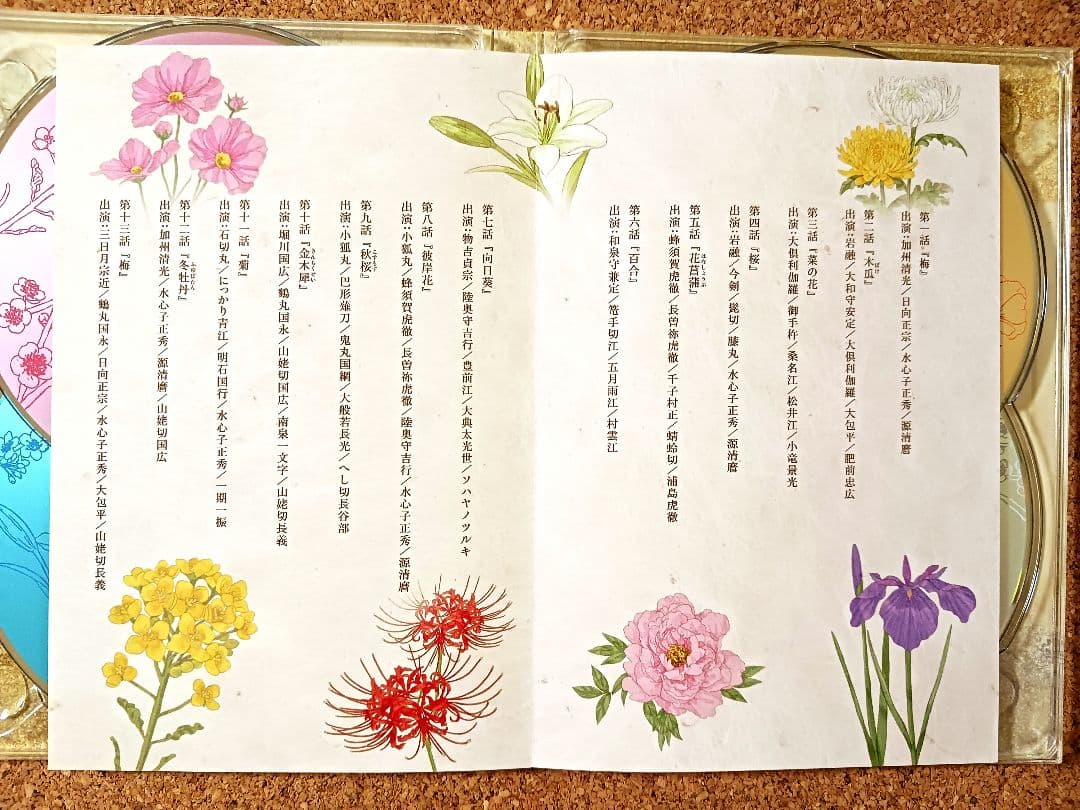 第一話『梅』
出演:加州清光／日向正宗／水心子正秀／源清麿
第二話『木瓜』
ぼけ
出演:岩融／大和守安定／大倶利伽羅／大包平／肥前忠広
第三話『菜の花』
出演:大倶利伽羅／御手杵／桑名江／松井江／小竜景光
第四話『桜』
出演:岩融／今剣／髭切／膝丸／水心子正秀／源清麿
第五話『花菖蒲』
はなしょうぶ
出演:蜂須賀虎徹／長曽祢虎徹／千子村正／蜻蛉切／浦島虎徹
第六話『百合』
出演:和泉守兼定／篭手切江／五月雨江／村雲江
第七話『向日葵』
出演:物吉貞宗／陸奥守吉行／豊前江／大典太光世／ソハヤノツルキ
第八話『彼岸花』
出演:小狐丸／蜂須賀虎徹／長曽祢虎徹／陸奥守吉行／水心子正秀／源清麿
第九話『秋桜』
こすもす
出演:小狐丸／巴形薙刀／鬼丸国綱／大般若長光／へし切長谷部
第十話『金木犀』
きんもくせい
出演:堀川国広／鶴丸国永／山姥切国広／南泉一文字／山姥切長義
第十一話『菊』
出演:石切丸／にっかり青江／明石国行／水心子正秀／一期一振
第十二話『冬牡丹』
ふゆぼたん
出演:加州清光／水心子正秀／源清麿／山姥切国広
第十三話『梅』
出演:三日月宗近／鶴丸国永／日向正宗／水心子正秀／大包平／山姥切長義